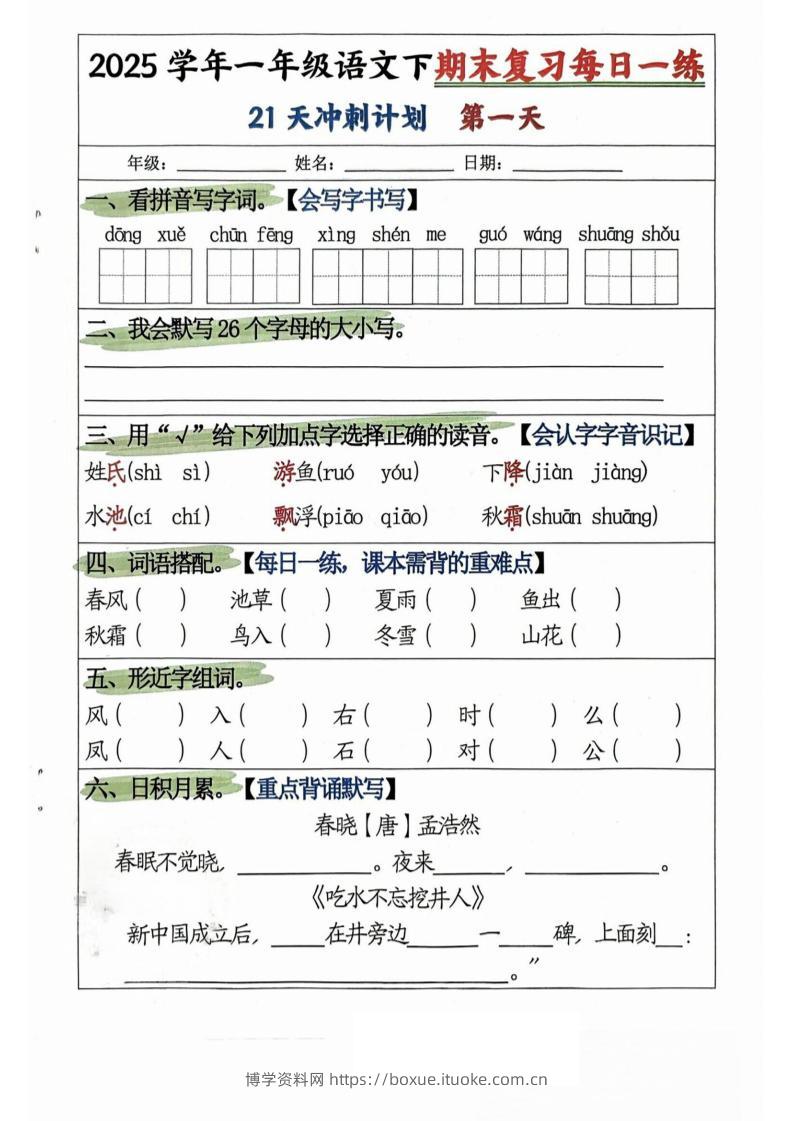 2025 学年一年级语文下期末复习每日一练
21 天冲刺计划 第一天
年级：__________ 姓名：__________ 日期：__________
一、看拼音写字词。【会写字书写】
dōng xuě chūn fēng xìng shén me guó wáng shuāng shǒu
二、我会默写 26 个字母的大小写。
三、用“√”给下列加点字选择正确的读音。【会认字字音识记】
姓氏(shì sì) 游鱼(ruó yóu) 下降(jiàn jiàng)
水池(cí chí) 飘浮(piāo qiāo) 秋霜(shuān shuāng)
四、词语搭配。【每日一练，课本需背的重难点】
春风（ ） 池草（ ） 夏雨（ ） 鱼出（ ）
秋霜（ ） 鸟入（ ） 冬雪（ ） 山花（ ）
五、形近字组词。
风（ ） 入（ ） 右（ ） 时（ ） 么（ ）
凤（ ） 人（ ） 石（ ） 对（ ） 公（ ）
六、日积月累。【重点背诵默写】
春晓【唐】孟浩然
春眠不觉晓，__________。夜来_____，__________。
《吃水不忘挖井人》
新中国成立后，____在井旁边_____一____碑，上面刻__：
______________________________。”
博学资料网 https://boxue.ituoke.com.cn